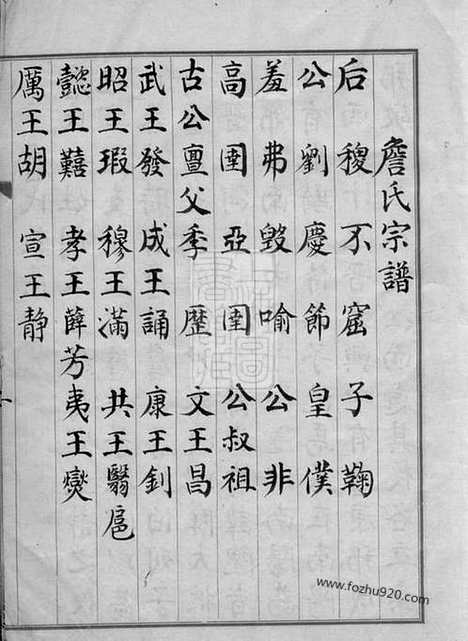 詹氏宗譜
后稷 不窋 子鞠
公劉 慶節 皇僕
羞弗 毀喻 公非
高圉 亞圉 公叔祖
古公亶父 季歷 文王昌
武王發 成王誦 康王釗
昭王瑕 穆王滿 共王繄扈
懿王囏 孝王薛芳 夷王燮
厲王胡 宣王静
www.fozhu920.com